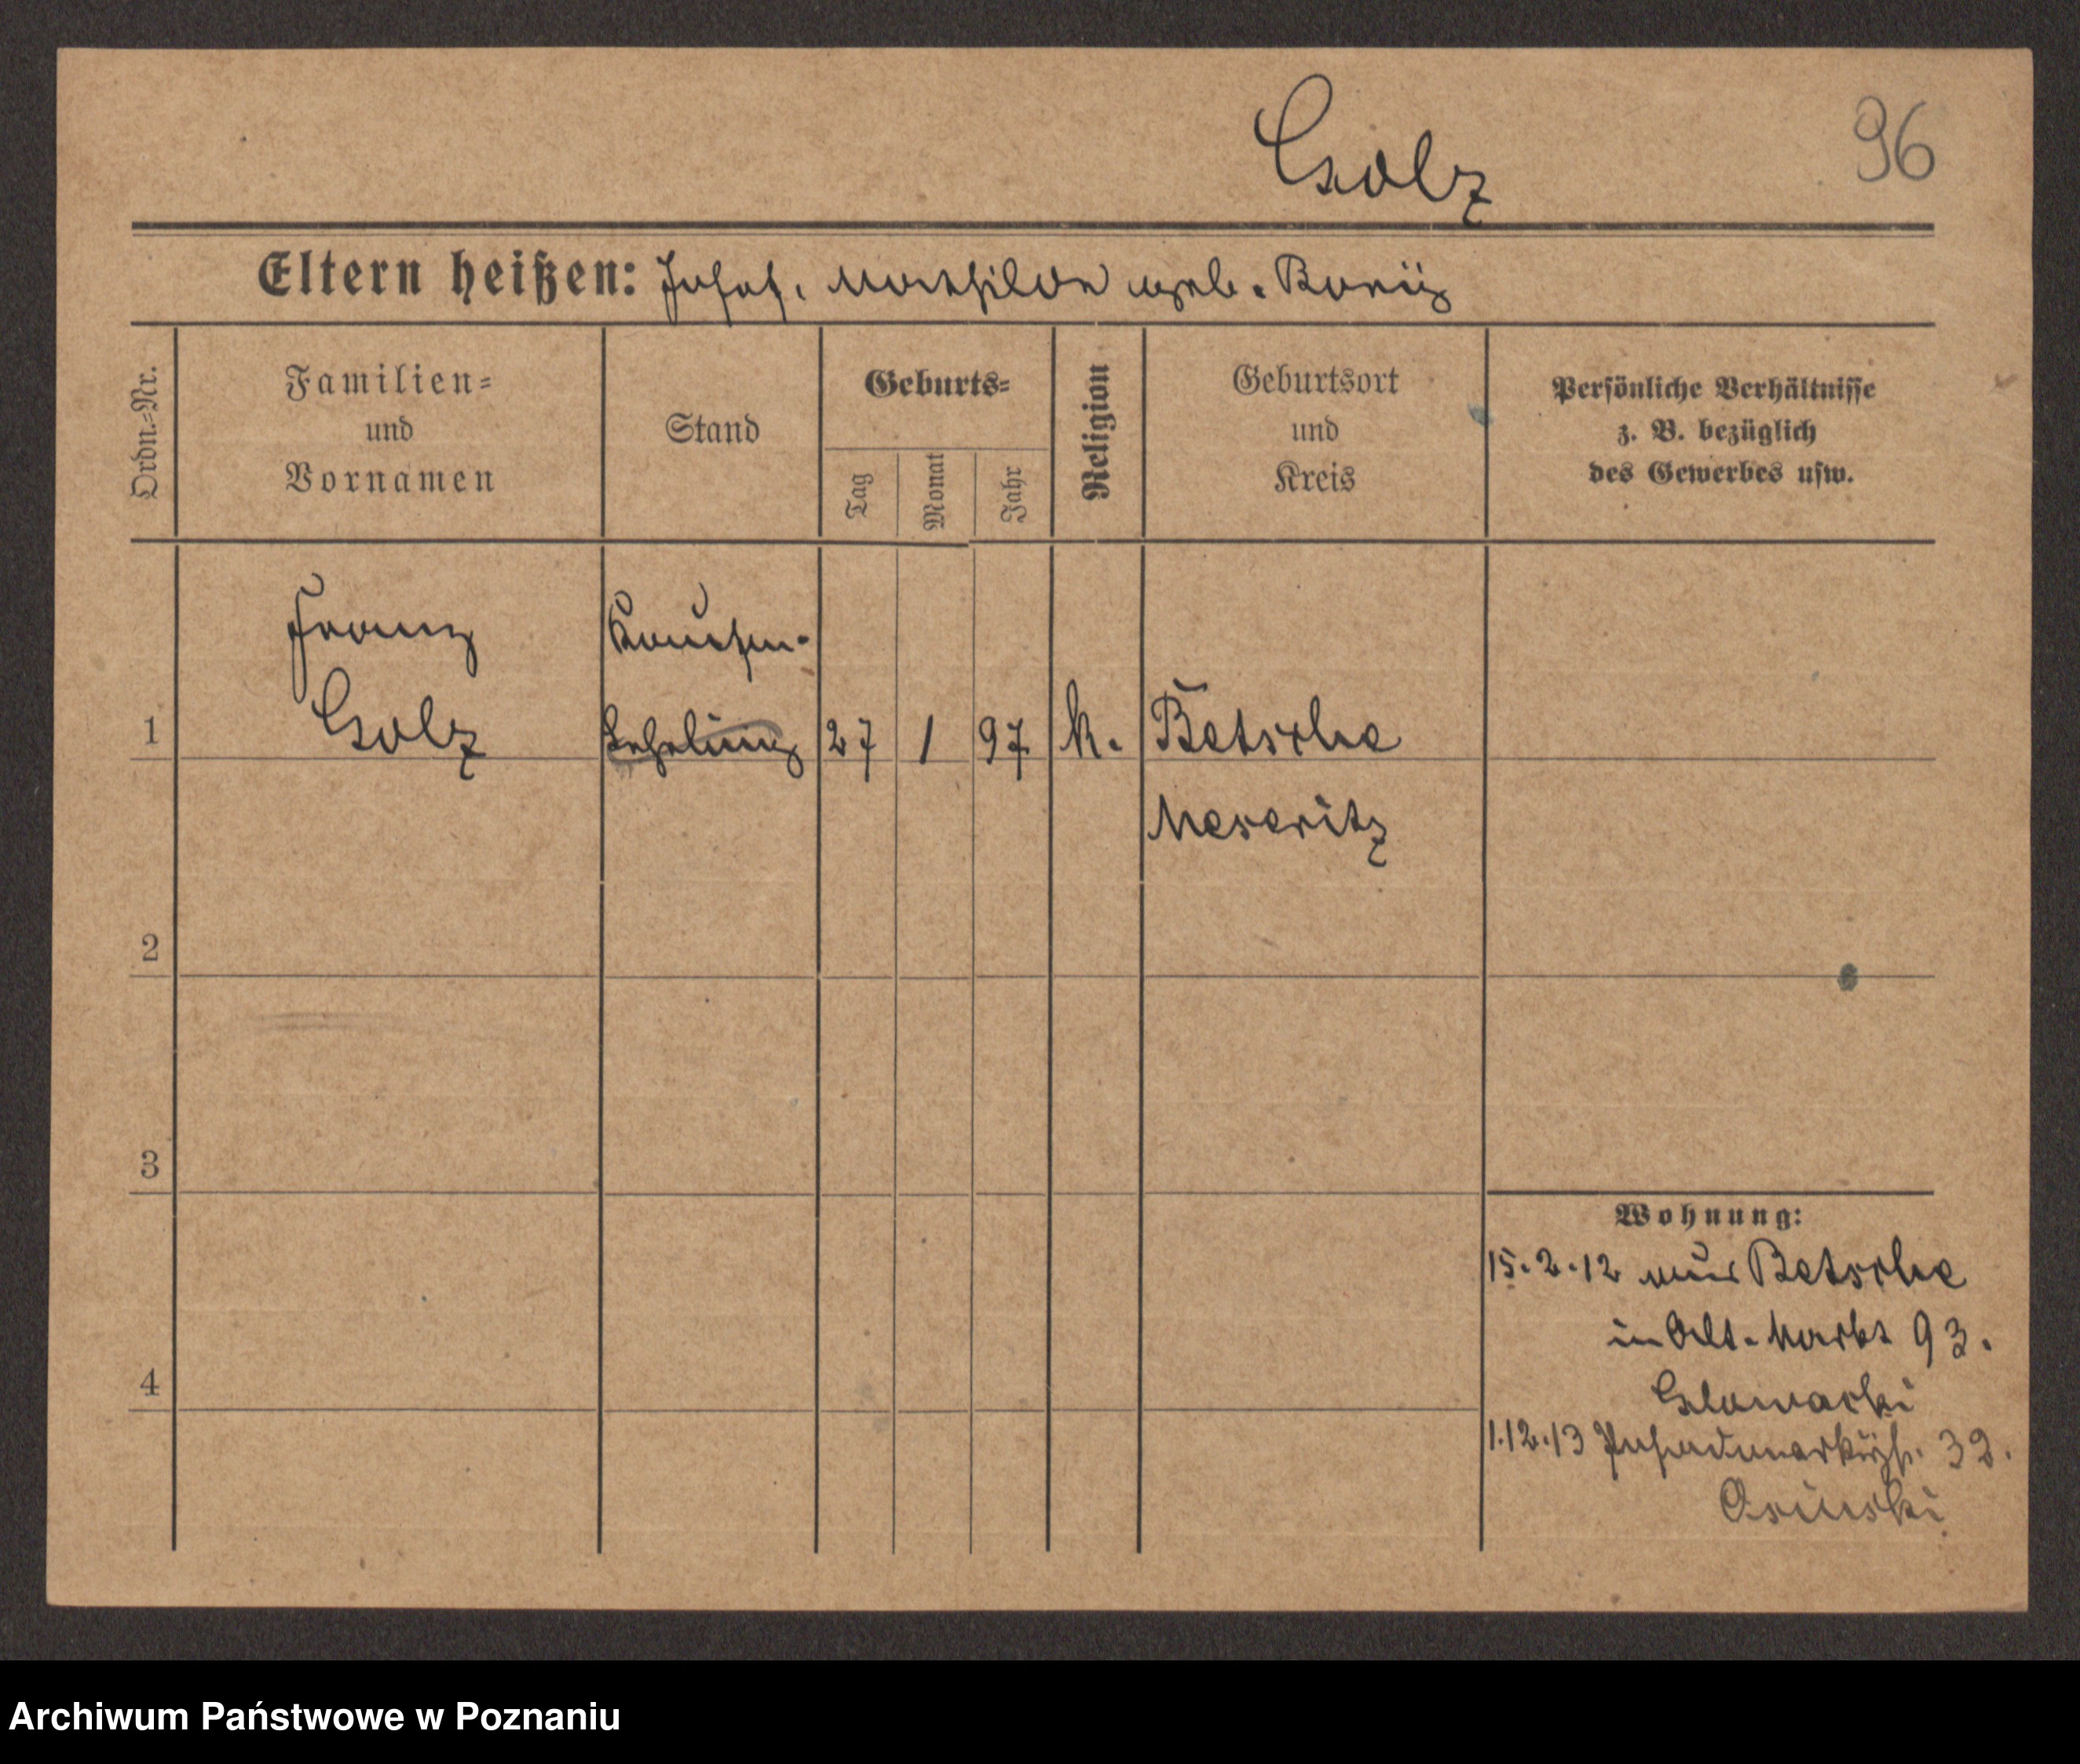 Golz
96
Eltern heißen: Josef, Mathilde geb.
Ordn.=Nr.
Familien=
und
Vornamen
Stand
Geburts=
Tag
Monat
Jahr
Religion
Geburtsort
und
Kreis
Persönliche Verhältnisse
z. B. bezüglich
des Gewerbes usw.
Franz Kaufm.
1 Golz Lehrling 27 1 97 k. Betsche
Meseritz
2
3
4
Wohnung:
15.2.12 aus Betsche
in Alt. Markt 93.
1.12.13 32.
Osinski
Archiwum Państwowe w Poznaniu